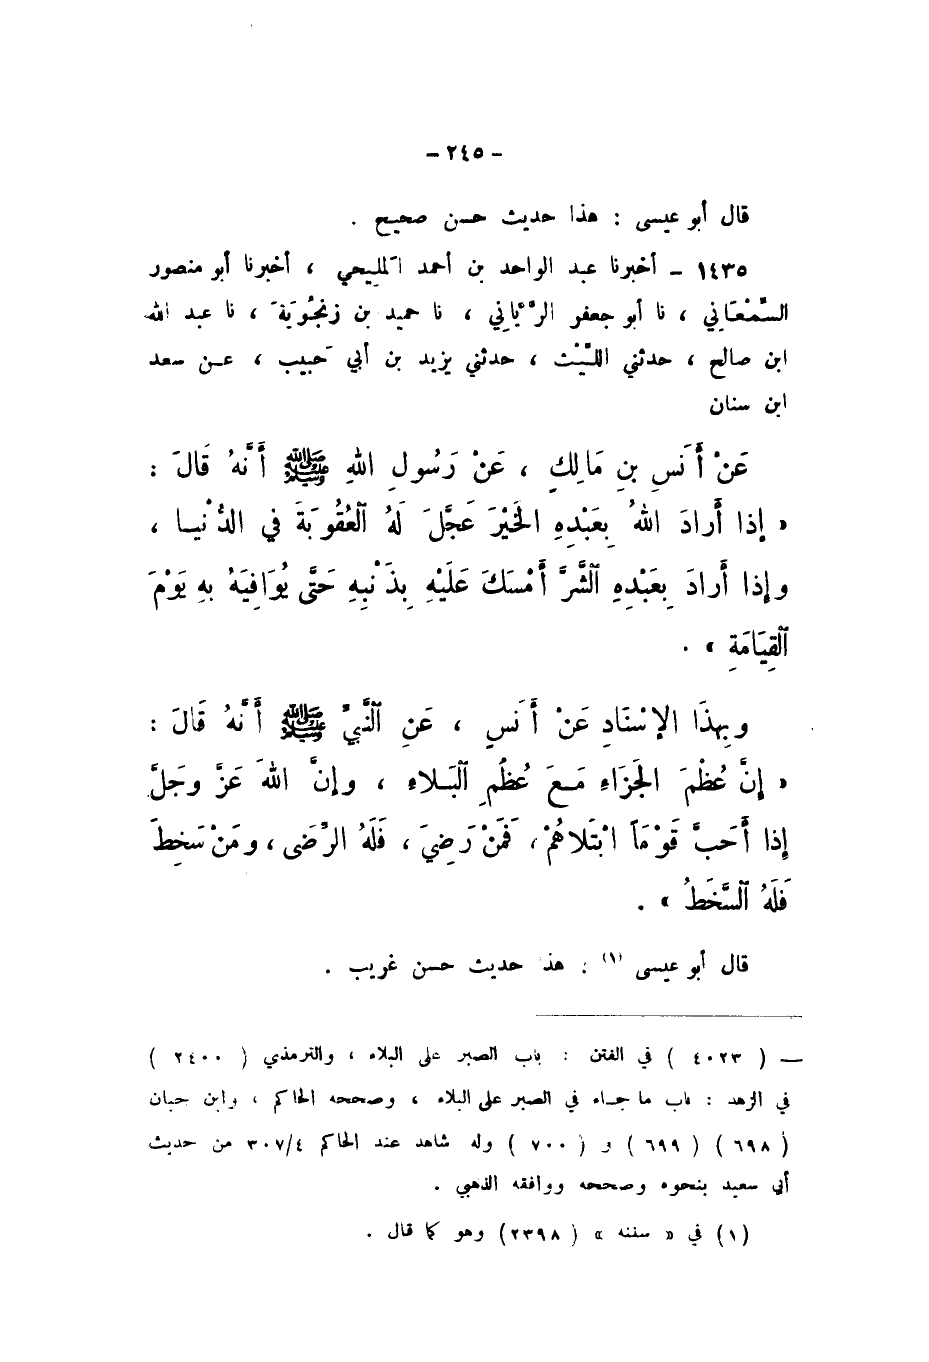 - ٢٤٥ -
قال أبو عيسى : هذا حديث حسن صحيح .
١٤٣٥ - أخبرنا عبد الواحد بن أحمد المليحي ، أخبرنا أبو منصور
السَّمْعَاني ، نا أبو جعفر الرَّيَّاني ، نا حميد بن زنجُويَة ، نا عبد الله
ابن صالح ، حدثني اللَّيْث ، حدثني يزيد بن أبي حَبيب ، عن سعد
ابن سنان
عَنْ أَنَسِ بنِ مَالِكٍ ، عَنْ رَسُولِ اللهِ ﷺ أَنَّهُ قَالَ :
« إذا أَرادَ اللهُ بِعَبْدِهِ الخَيْرَ عَجَّلَ لَهُ ٱلعُقُوبَةَ في الدُّنْيا ،
وإذا أَرادَ بِعَبْدِهِ ٱلشَّرَّ أَمْسَكَ عَلَيْهِ بِذَنْبِهِ حَتَّى يُوَافِيَهُ بِهِ يَوْمَ
ٱلقِيَامَةِ » .
وبِهذَا الإسْنَادِ عَنْ أَنَسٍ ، عَنِ ٱلنَّبيِّ ﷺ أَنَّهُ قَالَ :
« إنَّ عُظْمَ الجَزَاءِ مَعَ عُظْمِ ٱلبَلاءِ ، وإنَّ اللهَ عَزَّ وجَلَّ
إذا أَحَبَّ قَوْمَاً ابْتَلاهُمْ ، فَمَنْ رَضِيَ ، فَلَهُ الرِّضَى ، ومَنْ سَخِطَ
فَلَهُ ٱلسَّخَطُ » .
قال أبو عيسى (١) : هذا حديث حسن غريب .
— ( ٤٠٢٣ ) في الفتن : باب الصبر على البلاء ، والترمذي ( ٢٤٠٠ )
في الزهد : باب ما جاء في الصبر على البلاء ، وصححه الحاكم ، وابن حبان
( ٦٩٨ ) ( ٦٩٩ ) و ( ٧٠٠ ) وله شاهد عند الحاكم ٣٠٧/٤ من حديث
أبي سعيد بنحوه وصححه ووافقه الذهبي .
(١) في « سننه » ( ٢٣٩٨ ) وهو كما قال .